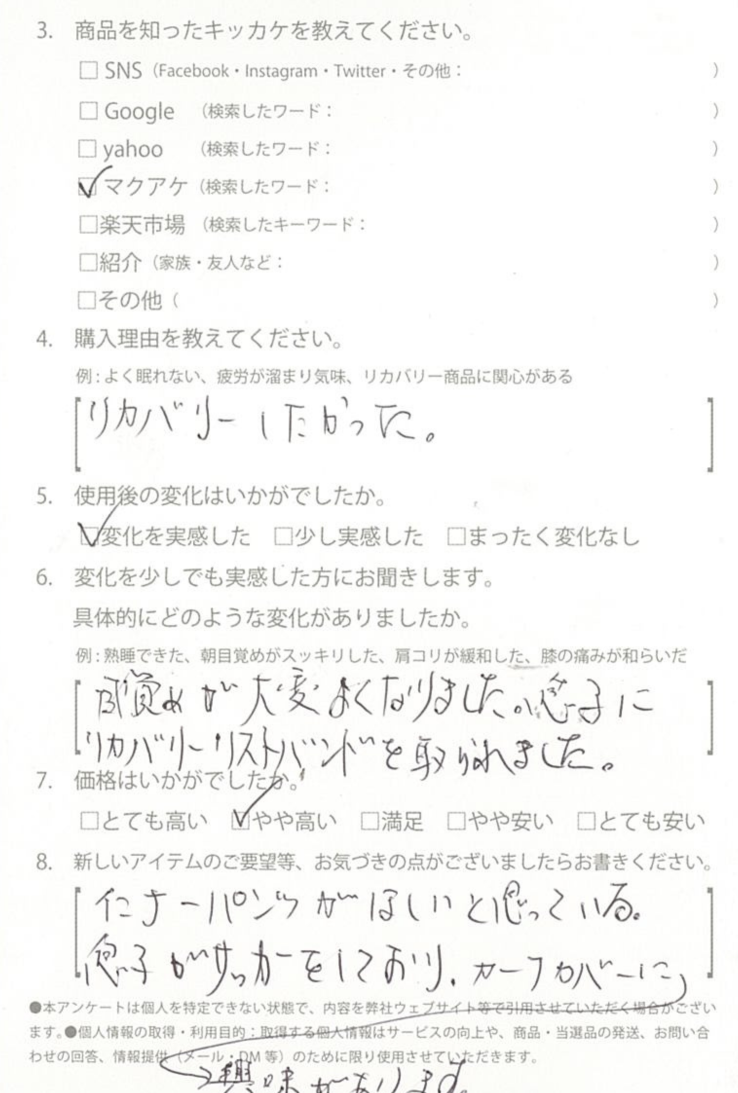 3. 商品を知ったキッカケを教えてください。
□ SNS（Facebook・Instagram・Twitter・その他： ）
□ Google （検索したワード： ）
□ yahoo （検索したワード： ）
☑ マクアケ（検索したワード： ）
□楽天市場 （検索したキーワード： ）
□紹介（家族・友人など： ）
□その他（ ）
4. 購入理由を教えてください。
例：よく眠れない、疲労が溜まり気味、リカバリー商品に関心がある
リカバリーしたかった。
5. 使用後の変化はいかがでしたか。
☑変化を実感した □少し実感した □まったく変化なし
6. 変化を少しでも実感した方にお聞きします。
具体的にどのような変化がありましたか。
例：熟睡できた、朝目覚めがスッキリした、肩コリが緩和した、膝の痛みが和らいだ
目覚めが大変よくなりました。息子に
リカバリーリストバンドを取られました。
7. 価格はいかがでしたか。
□とても高い ☑やや高い □満足 □やや安い □とても安い
8. 新しいアイテムのご要望等、お気づきの点がございましたらお書きください。
インナーパンツがほしいと思っている。
息子がサッカーをしており、カーフカバーに
●本アンケートは個人を特定できない状態で、内容を弊社ウェブサイト等で引用させていただく場合がござい
ます。●個人情報の取得・利用目的：取得する個人情報はサービスの向上や、商品・当選品の発送、お問い合
わせの回答、情報提供（メール・DM 等）のために限り使用させていただきます。
興味があります。